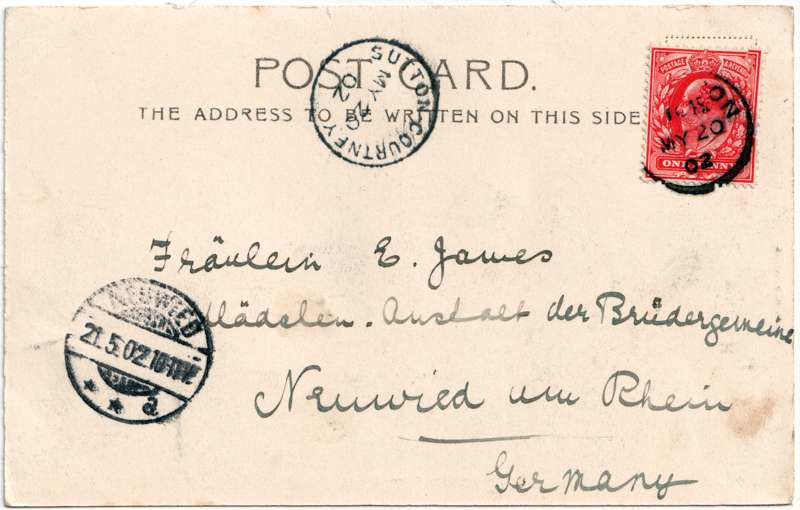 POST CARD.
THE ADDRESS TO BE WRITTEN ON THIS SIDE
SUTTON-COURTNEY
MY 20
02
POSTAGE & REVENUE
ONE PENNY
MY 20
02
Fräulein E. James
Mädchen-Anstalt der Brüdergemeine
Neuwied am Rhein
Germany
NEUWIED
21.5.02
* * a